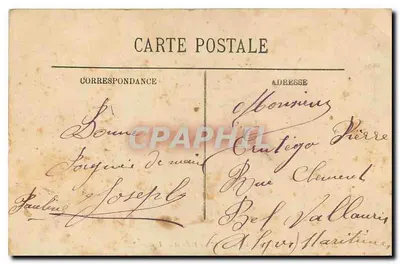 CARTE POSTALE
CORRESPONDANCE
ADRESSE
Bonne
Poignée de main
Joseph
Pauline
Monsieur
Pierre
Rue Clement
Bel Vallauris
(Alpes Maritimes
CPAPHIL